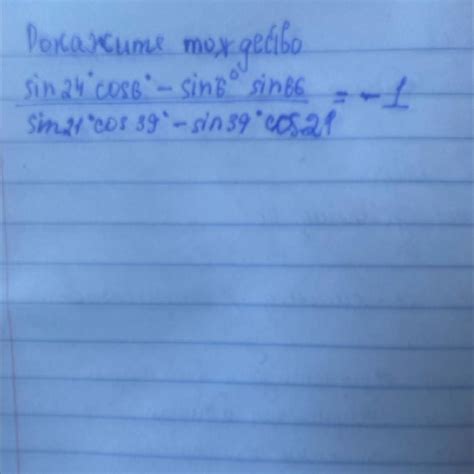 Докажите тождество
sin24°cos6° - sin6° sin66
sin21°cos39° - sin39°cos21 = -1